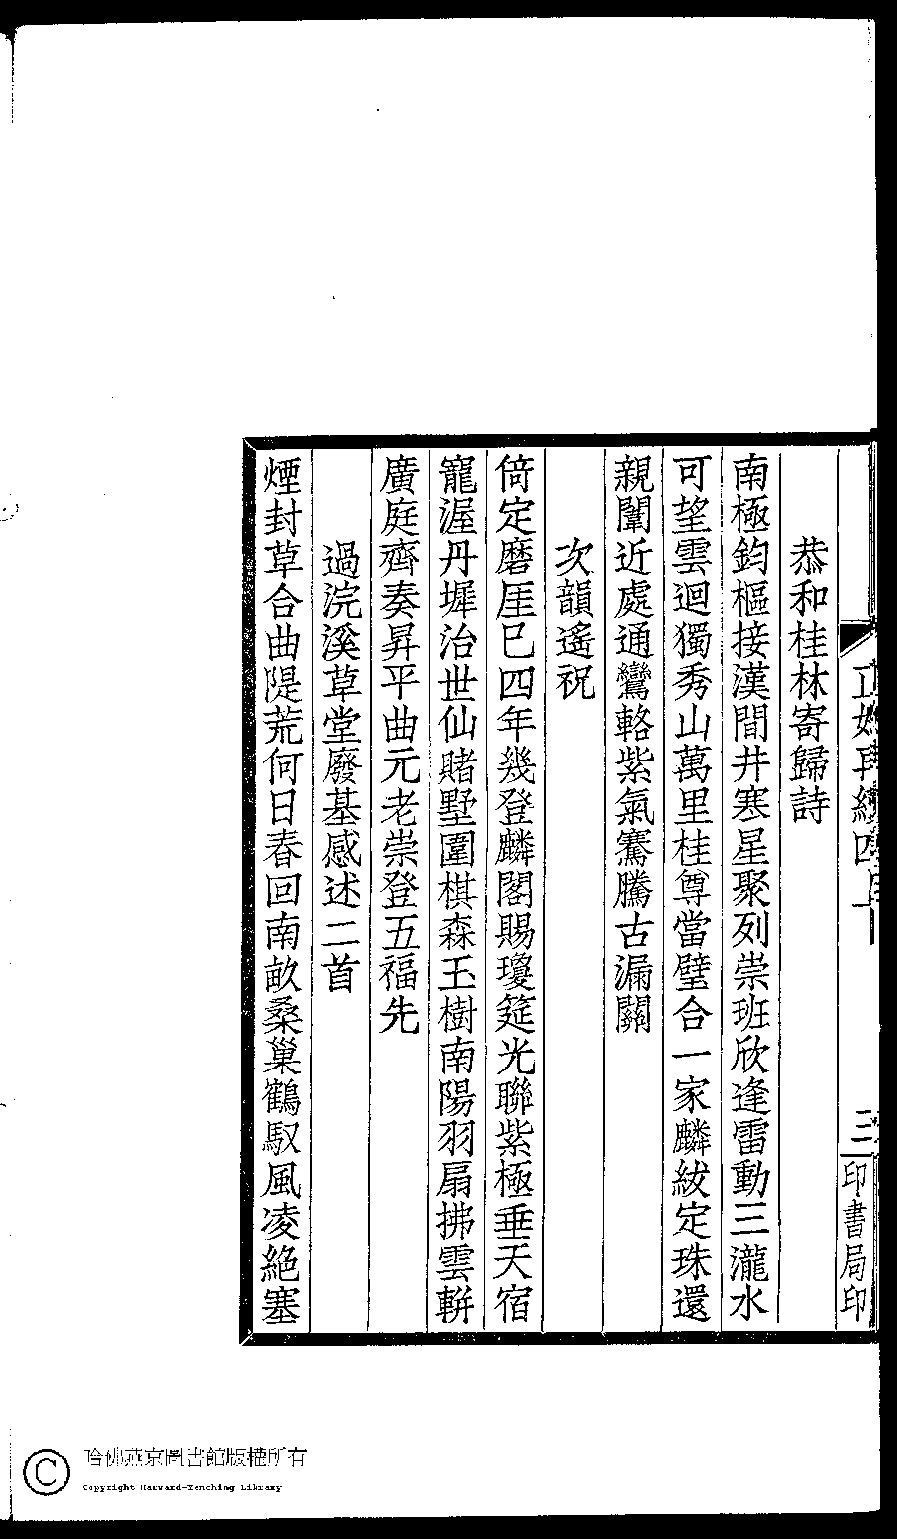 恭和桂林寄歸詩
南極鈞樞接漢間井寒星聚列崇班欣逢雷動三瀧水
可望雲迴獨秀山萬里桂尊當璧合一家麟紱定珠還
親闈近處通鸞輅紫氣騫騰古漏關
次韻遙祝
倚定磨厓巳四年幾登麟閣賜瓊筵光聯紫極垂天宿
寵渥丹墀治世仙賭墅圍棋森玉樹南陽羽扇拂雲輧
廣庭齊奏昇平曲元老崇登五福先
過浣溪草堂廢基感述二首
煙封草合曲隄荒何日春回南畝桑巢鶴馭風凌絕塞
三
印書局印
哈佛燕京圖書館版權所有
Copyright Harvard-Yenching Library